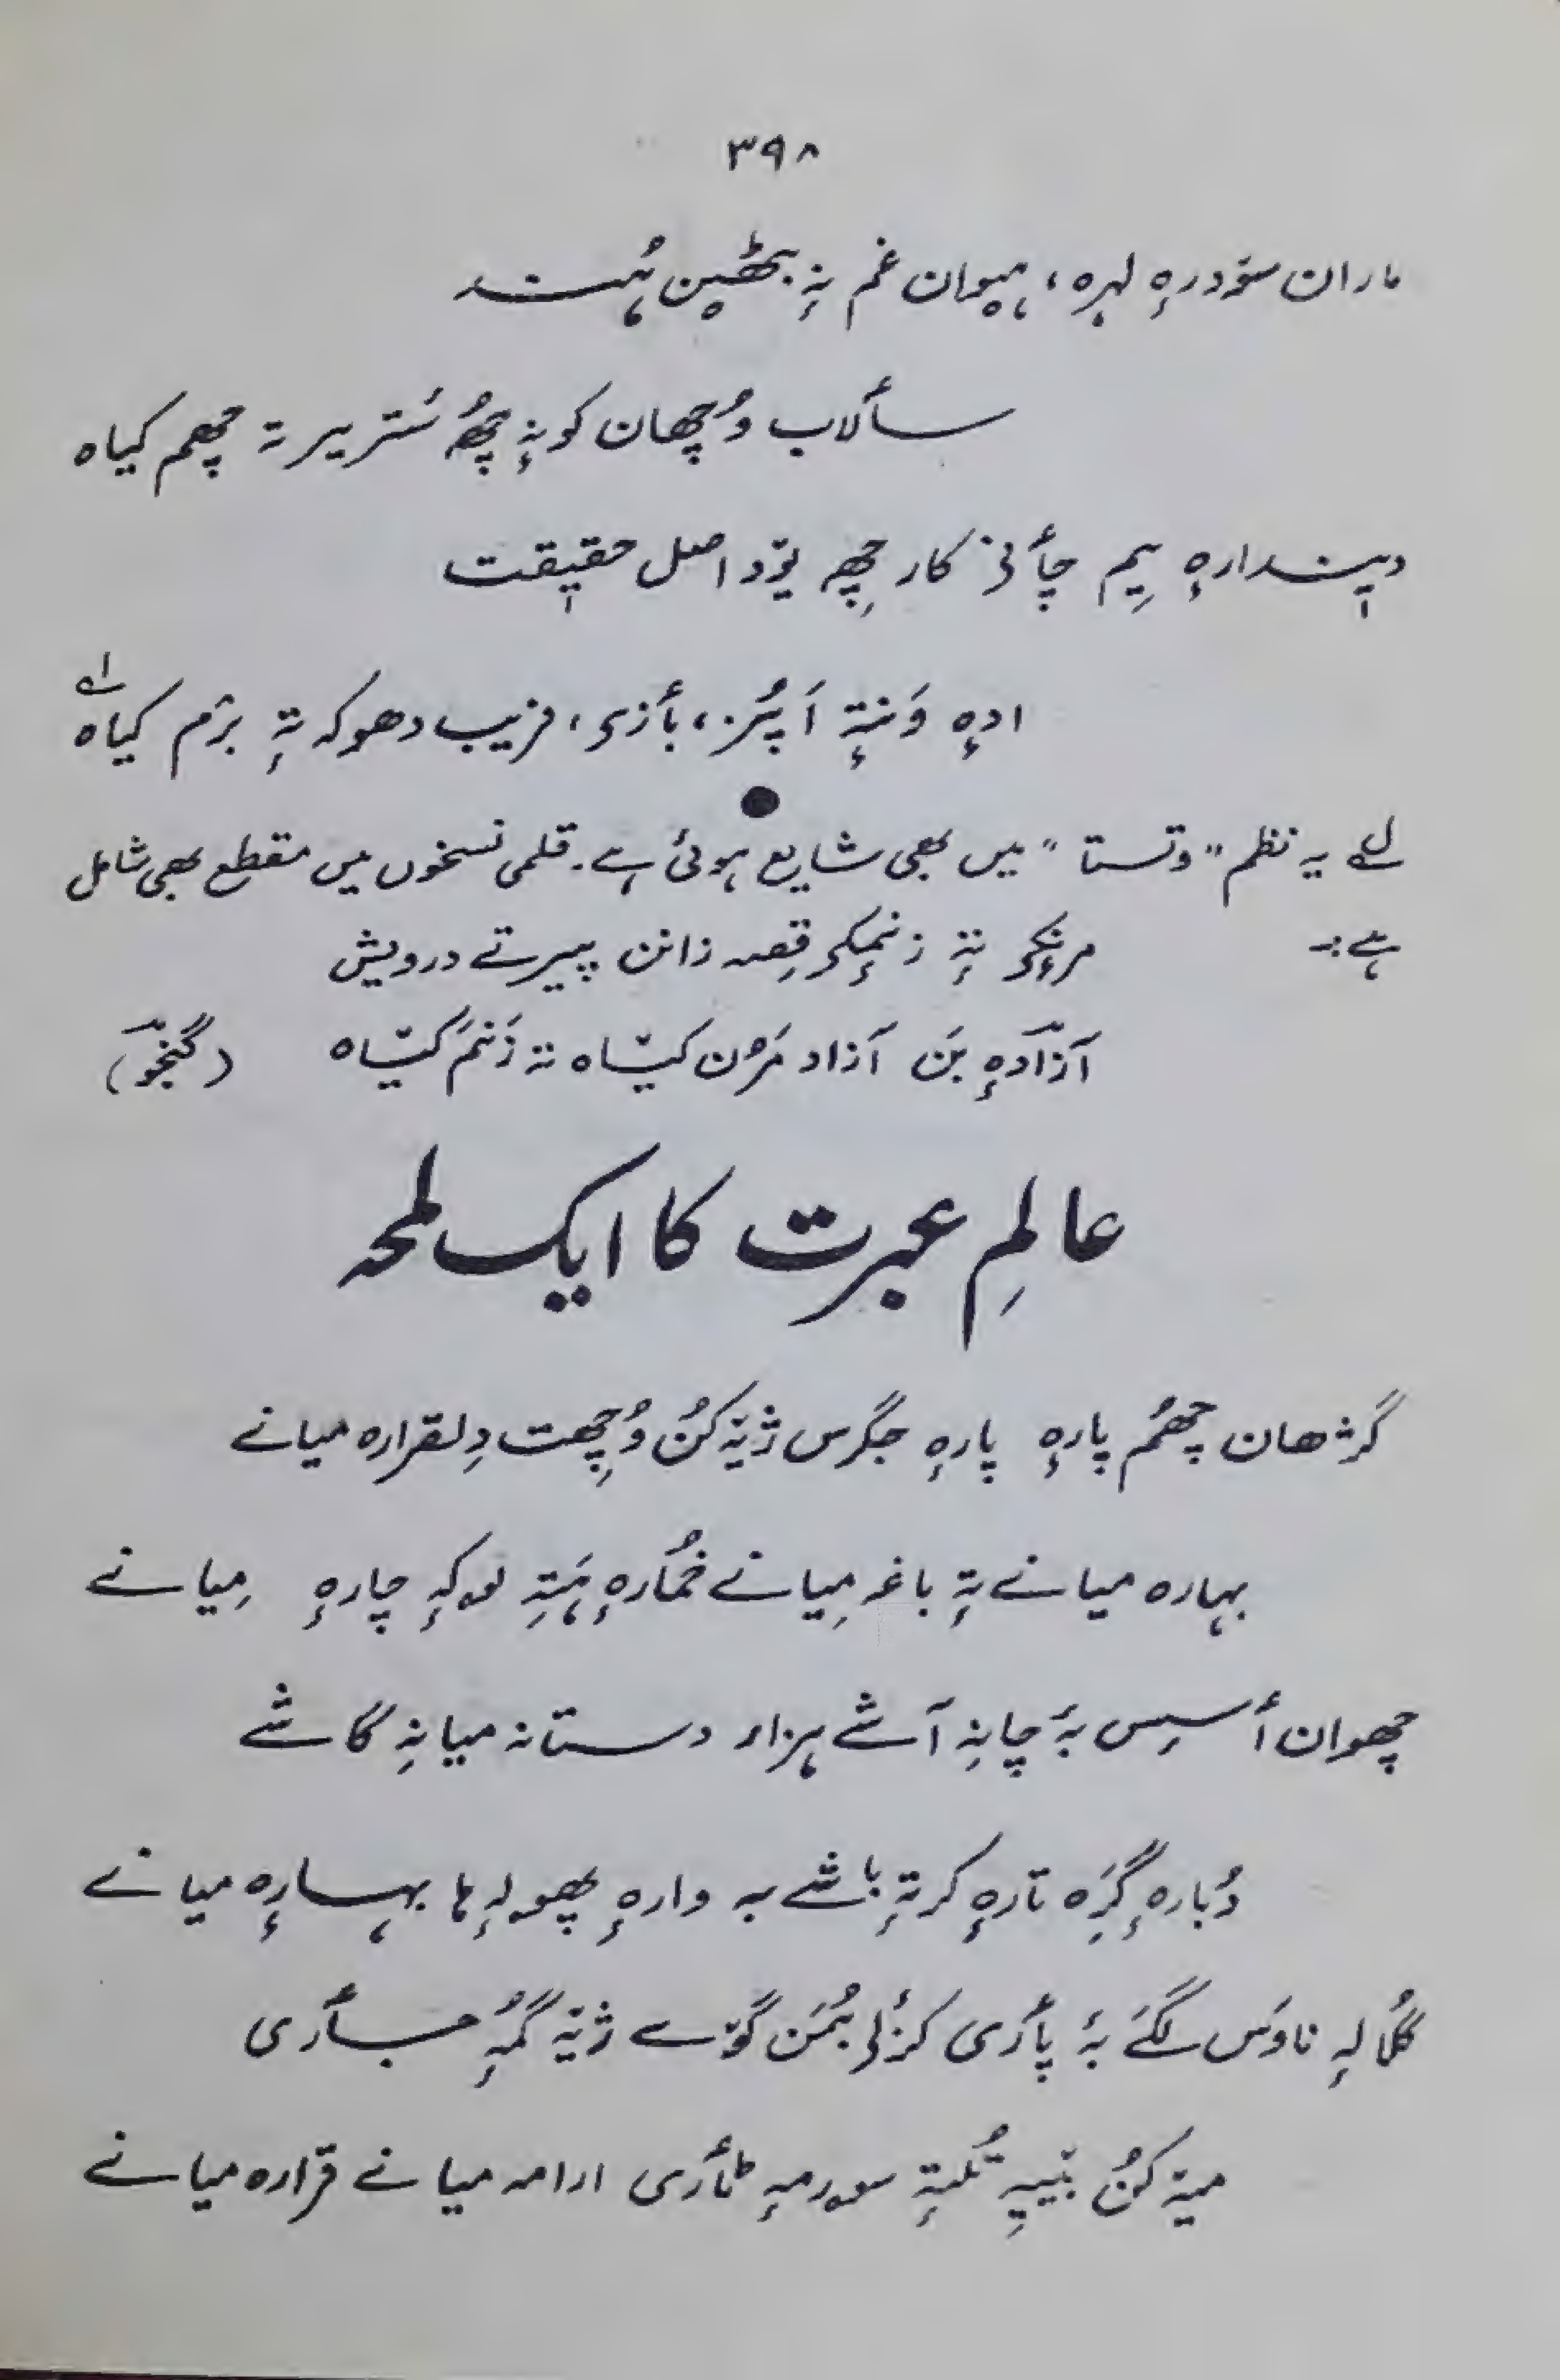 ۳۹۸
ماران سۆدرٕہ لہرہ، ہیوان غم نہٕ بٹھیٖن ہُند
سألاب وُچھان کونہٕ چھُ سُتریر تہ چھم کیاہ
دیٖندارٕہ یِم چأنۍ کار چھِہ یۆد اصل حقیٖقت
ادٕہ وَنتہٕ اَپُز، بأزی، فریب دھوکہ تہٕ برٛم کیاہ اے
لے یہ نظم "وتستا" میں بھی شایع ہوئی ہے۔ قلمی نسخوں میں مقطع بھی شامل
ہے:۔ مرنٕکۍ تہٕ زنمٕکۍ قِصہ زانن پیرتے درویش
آزادٕہ بَن آزاد مَرُن کیٛاہ تہ زَنمٕ کیٛاہ (گنجوٗ)
عالمِ عبرت کا ایک لمحہ
گژھان چھُم پارٕہ پارٕہ جگرس ژےٚ کُن وُچھِت دِلقرارہ میانے
بہارہ میانے تہٕ باغہ مِیانے خُمارٕہ ہَتہِ لوکہٕ چارٕہ مِیانے
چھوان أسِس بہٕ چانہِ آشے ہزار دستانہ میانہِ گاشے
دُبارٕہ گرَٕہ تارٕہ کرتہٕ باشے بہ وارٕہ پھولہٕ ہا بہارٕہ میانے
گُلالہٕ ناوَس لگَے بہٕ پأری کرٔنۍ بُمَن گۆے ژےٚ گمُہٕ جأری
میےٚ کُن بیٚیہِ تُلتہٕ سورمہٕ ٹأری ارامہ میانے قرارہ میانے